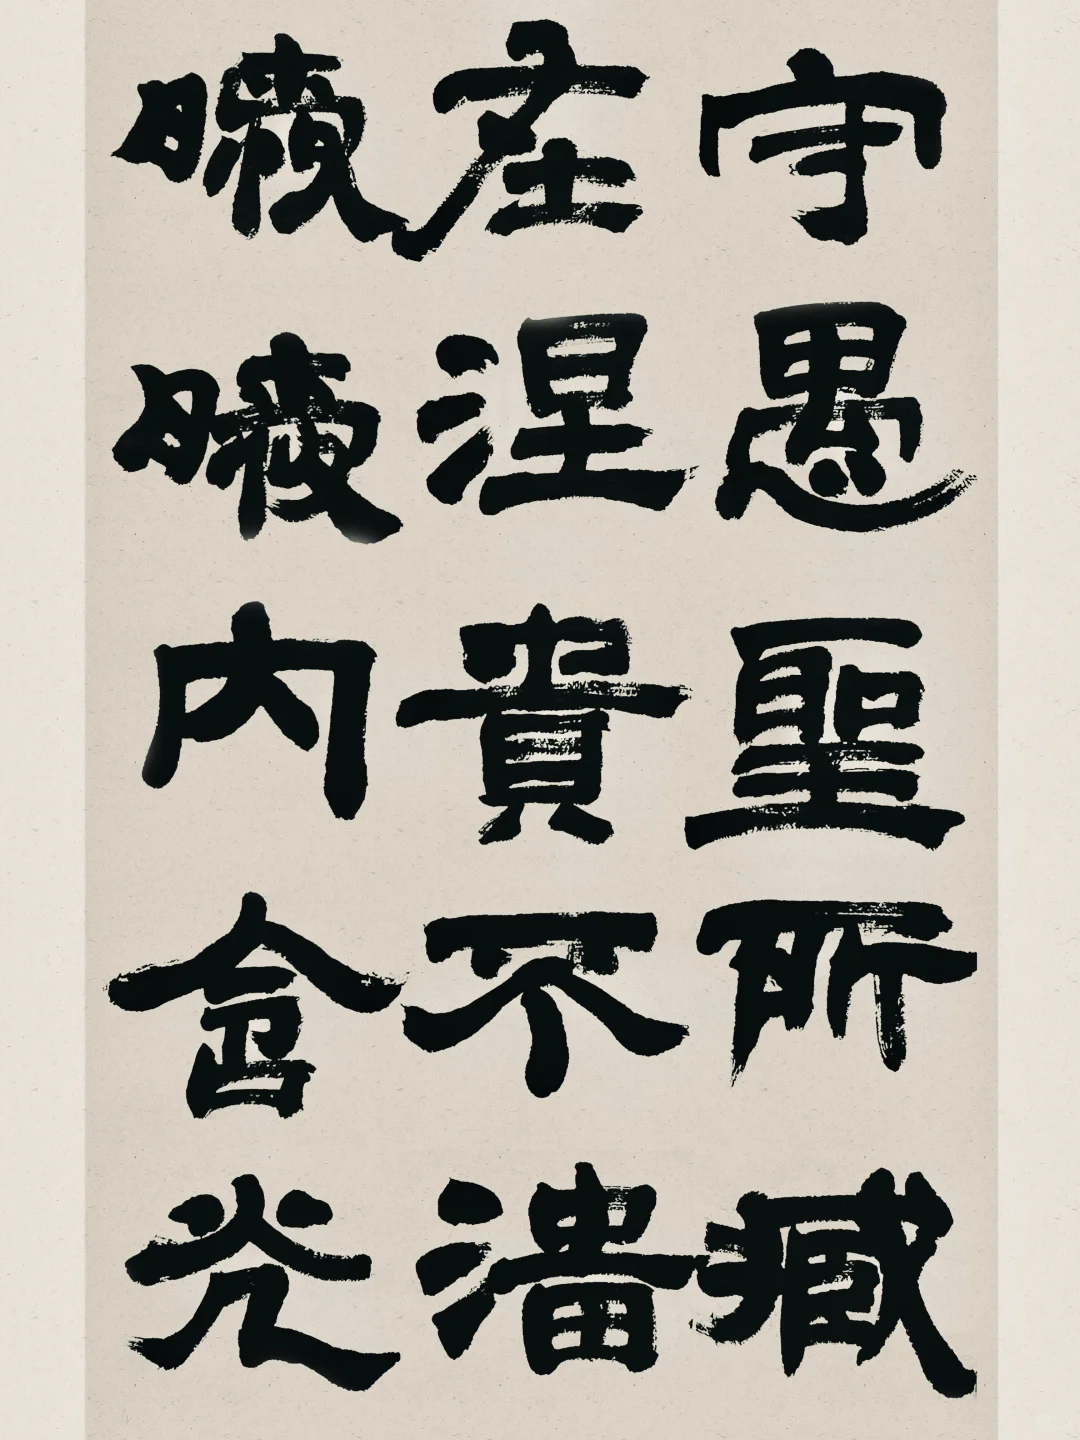 守愚聖所臧
在涅貴不淄
曖曖内含光